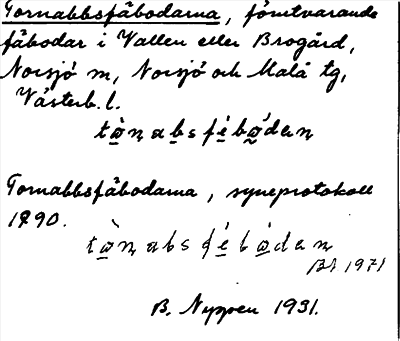 Tornabbsfäbodarna, försvarande
fäbodar i Vallen eller Brogård,
Norsjö m, Norsjö och Malå tg,
Västerb. l.
tὼn̥ab̲sfé̲bǫ́dan̥
Tornabbsfäbodarna, syneprotokoll
1790.
tὼn̥absfé̲bǫ́dan̥
Bd. 1971
B. Nyppen 1931.